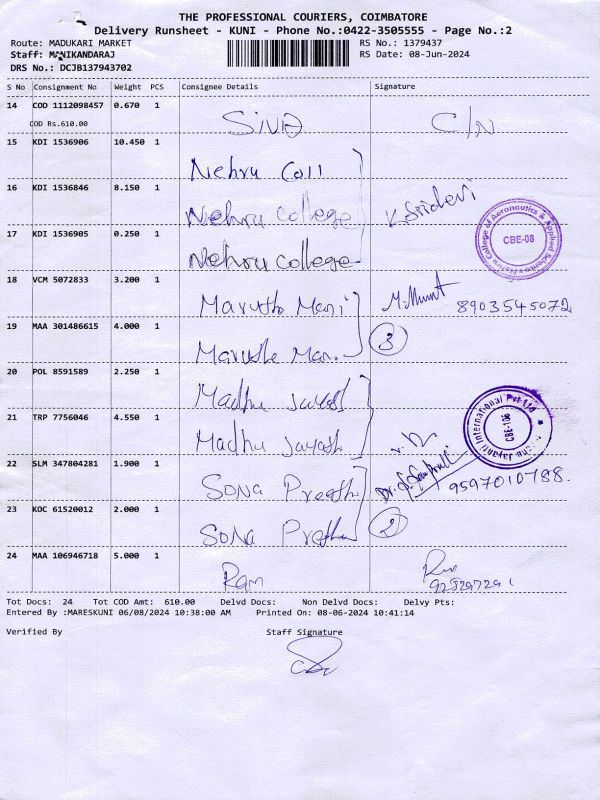 THE PROFESSIONAL COURIERS, COIMBATORE
Delivery Runsheet - KUNI - Phone No.:0422-3505555 - Page No.:2
Route: MADUKARI MARKET RS No.: 1379437
Staff: MANIKANDARAJ RS Date: 08-Jun-2024
DRS No.: DCJB137943702
S No Consignment No Weight PCS Consignee Details Signature
14 COD 1112098457 0.670 1 SIVA C/N
COD Rs.610.00
15 KDI 1536906 10.450 1 Nehru Coll
16 KDI 1536846 8.150 1 Nehru College V. Sridevi
17 KDI 1536905 0.250 1 Nehru College
Nehru College of Aeronautics & Applied Sciences
CBE-08
18 VCM 5072833 3.200 1 Maruthi Mani 8903545072
19 MAA 301486615 4.000 1 3
20 POL 8591589 2.250 1 Madhu
21 TRP 7756046 4.550 1 Madhu
Jayanti International Pvt Ltd
CBE-106
22 SLM 347804281 1.900 1 Sona 9597010788
23 KOC 61520012 2.000 1 Sona 2
24 MAA 106946718 5.000 1 Ram
Tot Docs: 24 Tot COD Amt: 610.00 Delvd Docs: Non Delvd Docs: Delvy Pts:
Entered By :MARESKUNI 06/08/2024 10:38:00 AM Printed On: 08-06-2024 10:41:14
Verified By Staff Signature